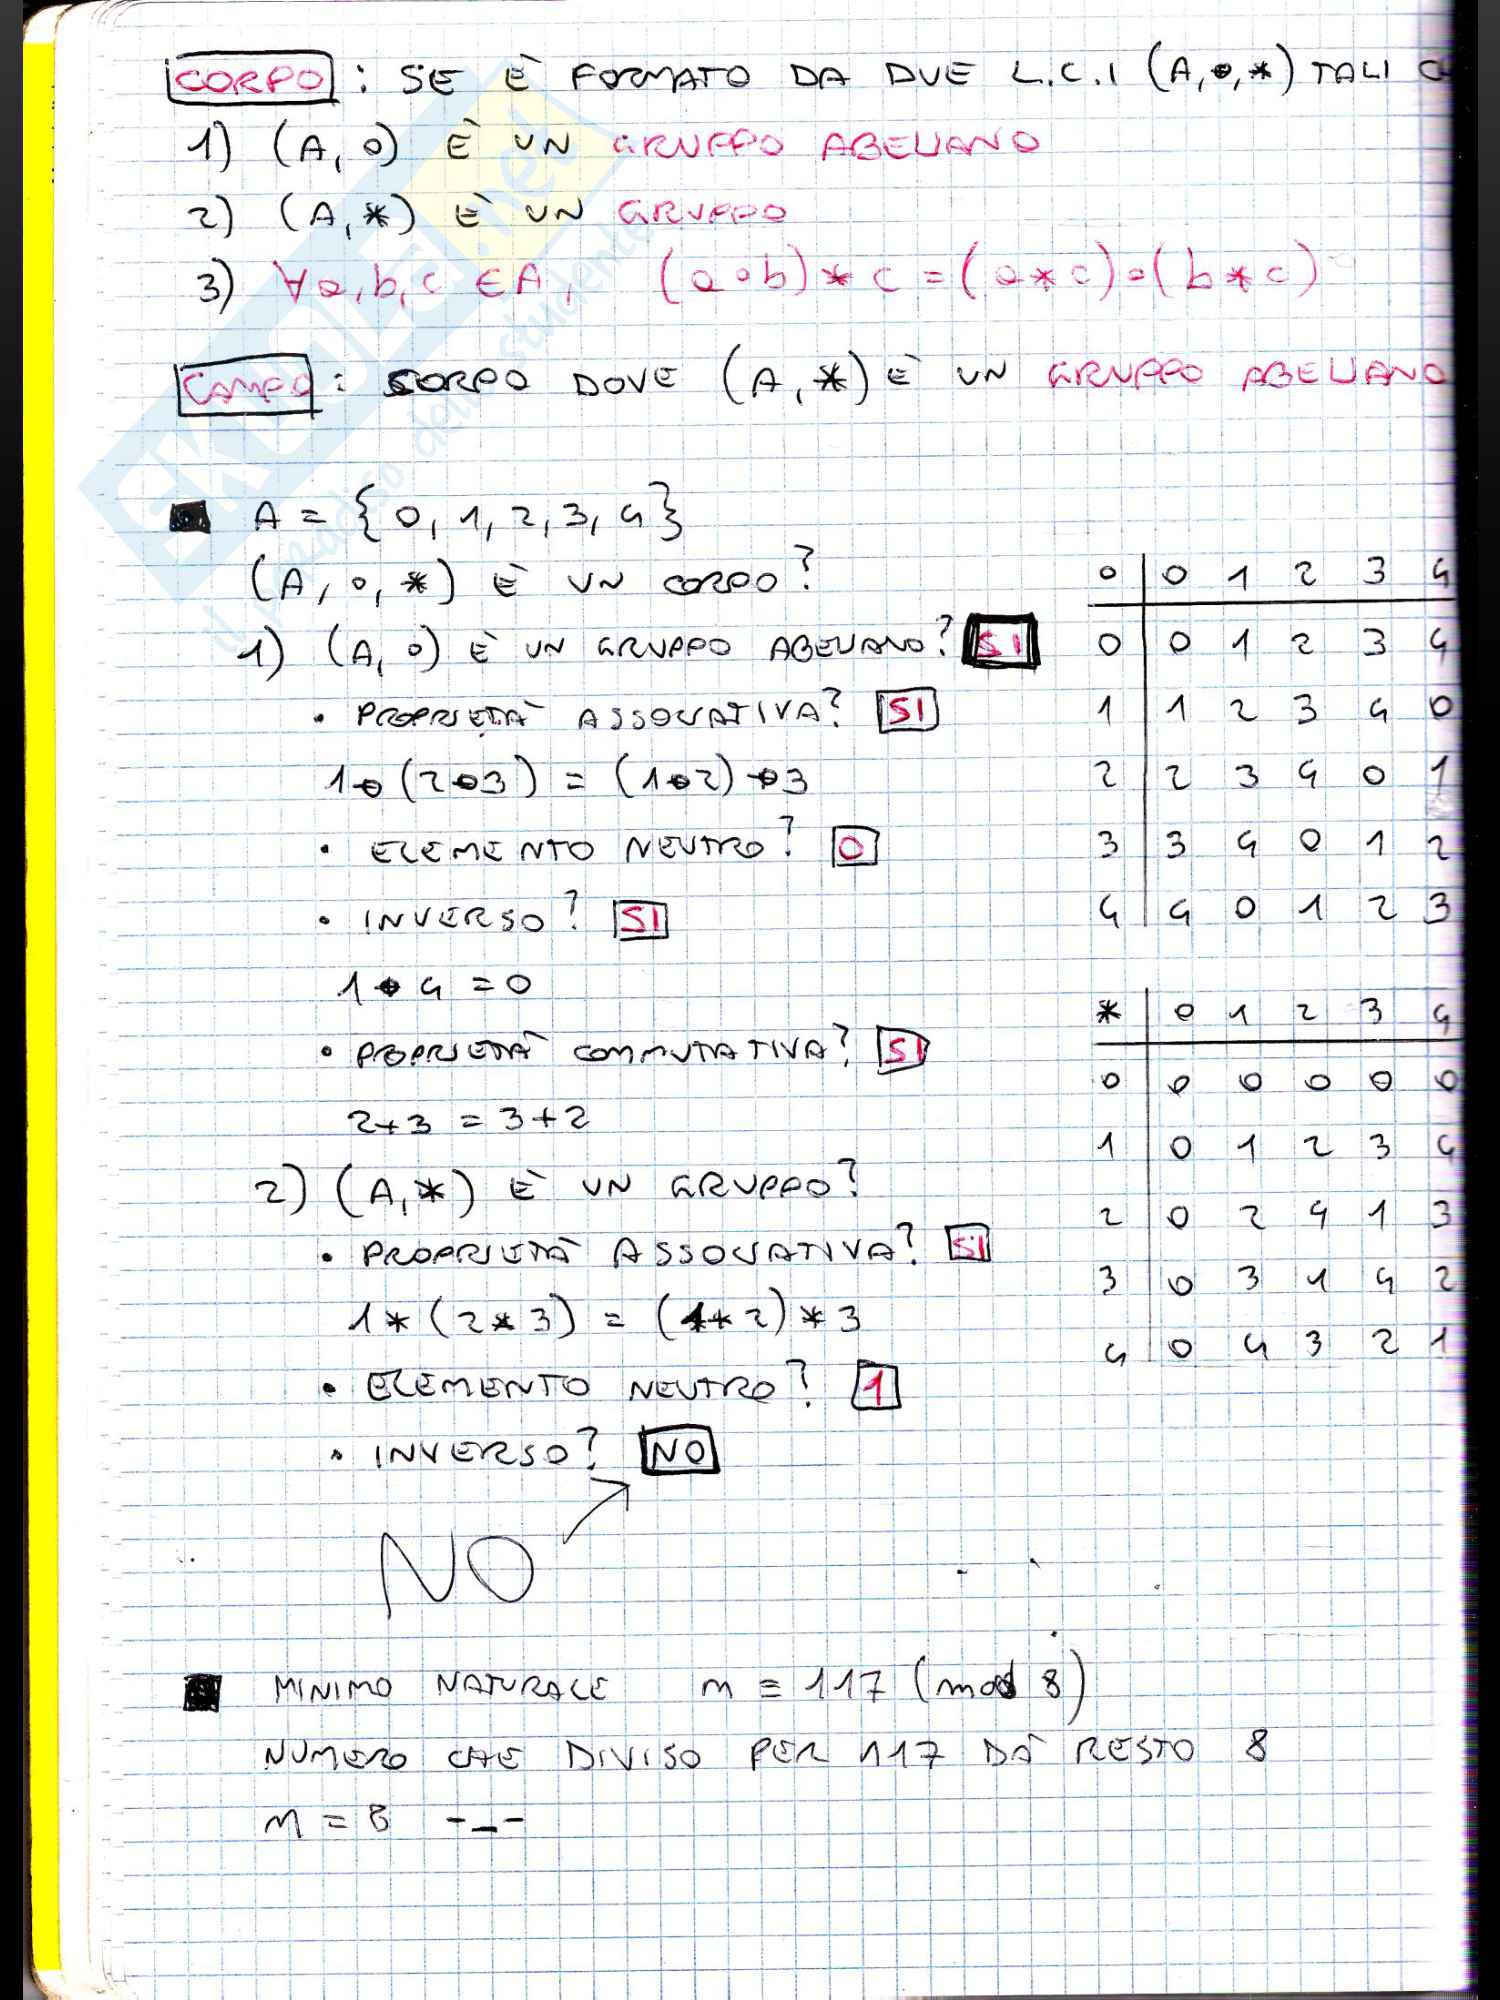 CORPO : SE È FORMATO DA DUE L.C.I (A,∘,*) TALI
1) (A,∘) È UN GRUPPO ABELIANO
2) (A,*) È UN GRUPPO
3) ∀a,b,c ∈A, (a∘b)*c=(a*c)∘(b*c)
CAMPO : CORPO DOVE (A,*) È UN GRUPPO ABELIANO
A = {0,1,2,3,4}
(A,∘,*) È UN CORPO?
1) (A,∘) È UN GRUPPO ABELIANO? SI
• PROPRIETÀ ASSOCIATIVA? SI
1∘(2∘3) = (1∘2)∘3
• ELEMENTO NEUTRO? 0
• INVERSO? SI
1∘4=0
• PROPRIETÀ COMMUTATIVA? SI
2+3 = 3+2
2) (A,*) È UN GRUPPO?
• PROPRIETÀ ASSOCIATIVA? SI
1*(2*3) = (1*2)*3
• ELEMENTO NEUTRO? 1
• INVERSO? NO
NO
∘ 0 1 2 3 4
0 0 1 2 3 4
1 1 2 3 4 0
2 2 3 4 0 1
3 3 4 0 1 2
4 4 0 1 2 3
* 0 1 2 3 4
0 0 0 0 0 0
1 0 1 2 3 4
2 0 2 4 1 3
3 0 3 1 4 2
4 0 4 3 2 1
MINIMO NATURALE m ≡ 117 (mod 8)
NUMERO CHE DIVISO PER 117 DÀ RESTO 8
m = 8 -_-
SKUOLA.net
il paradiso dello studente